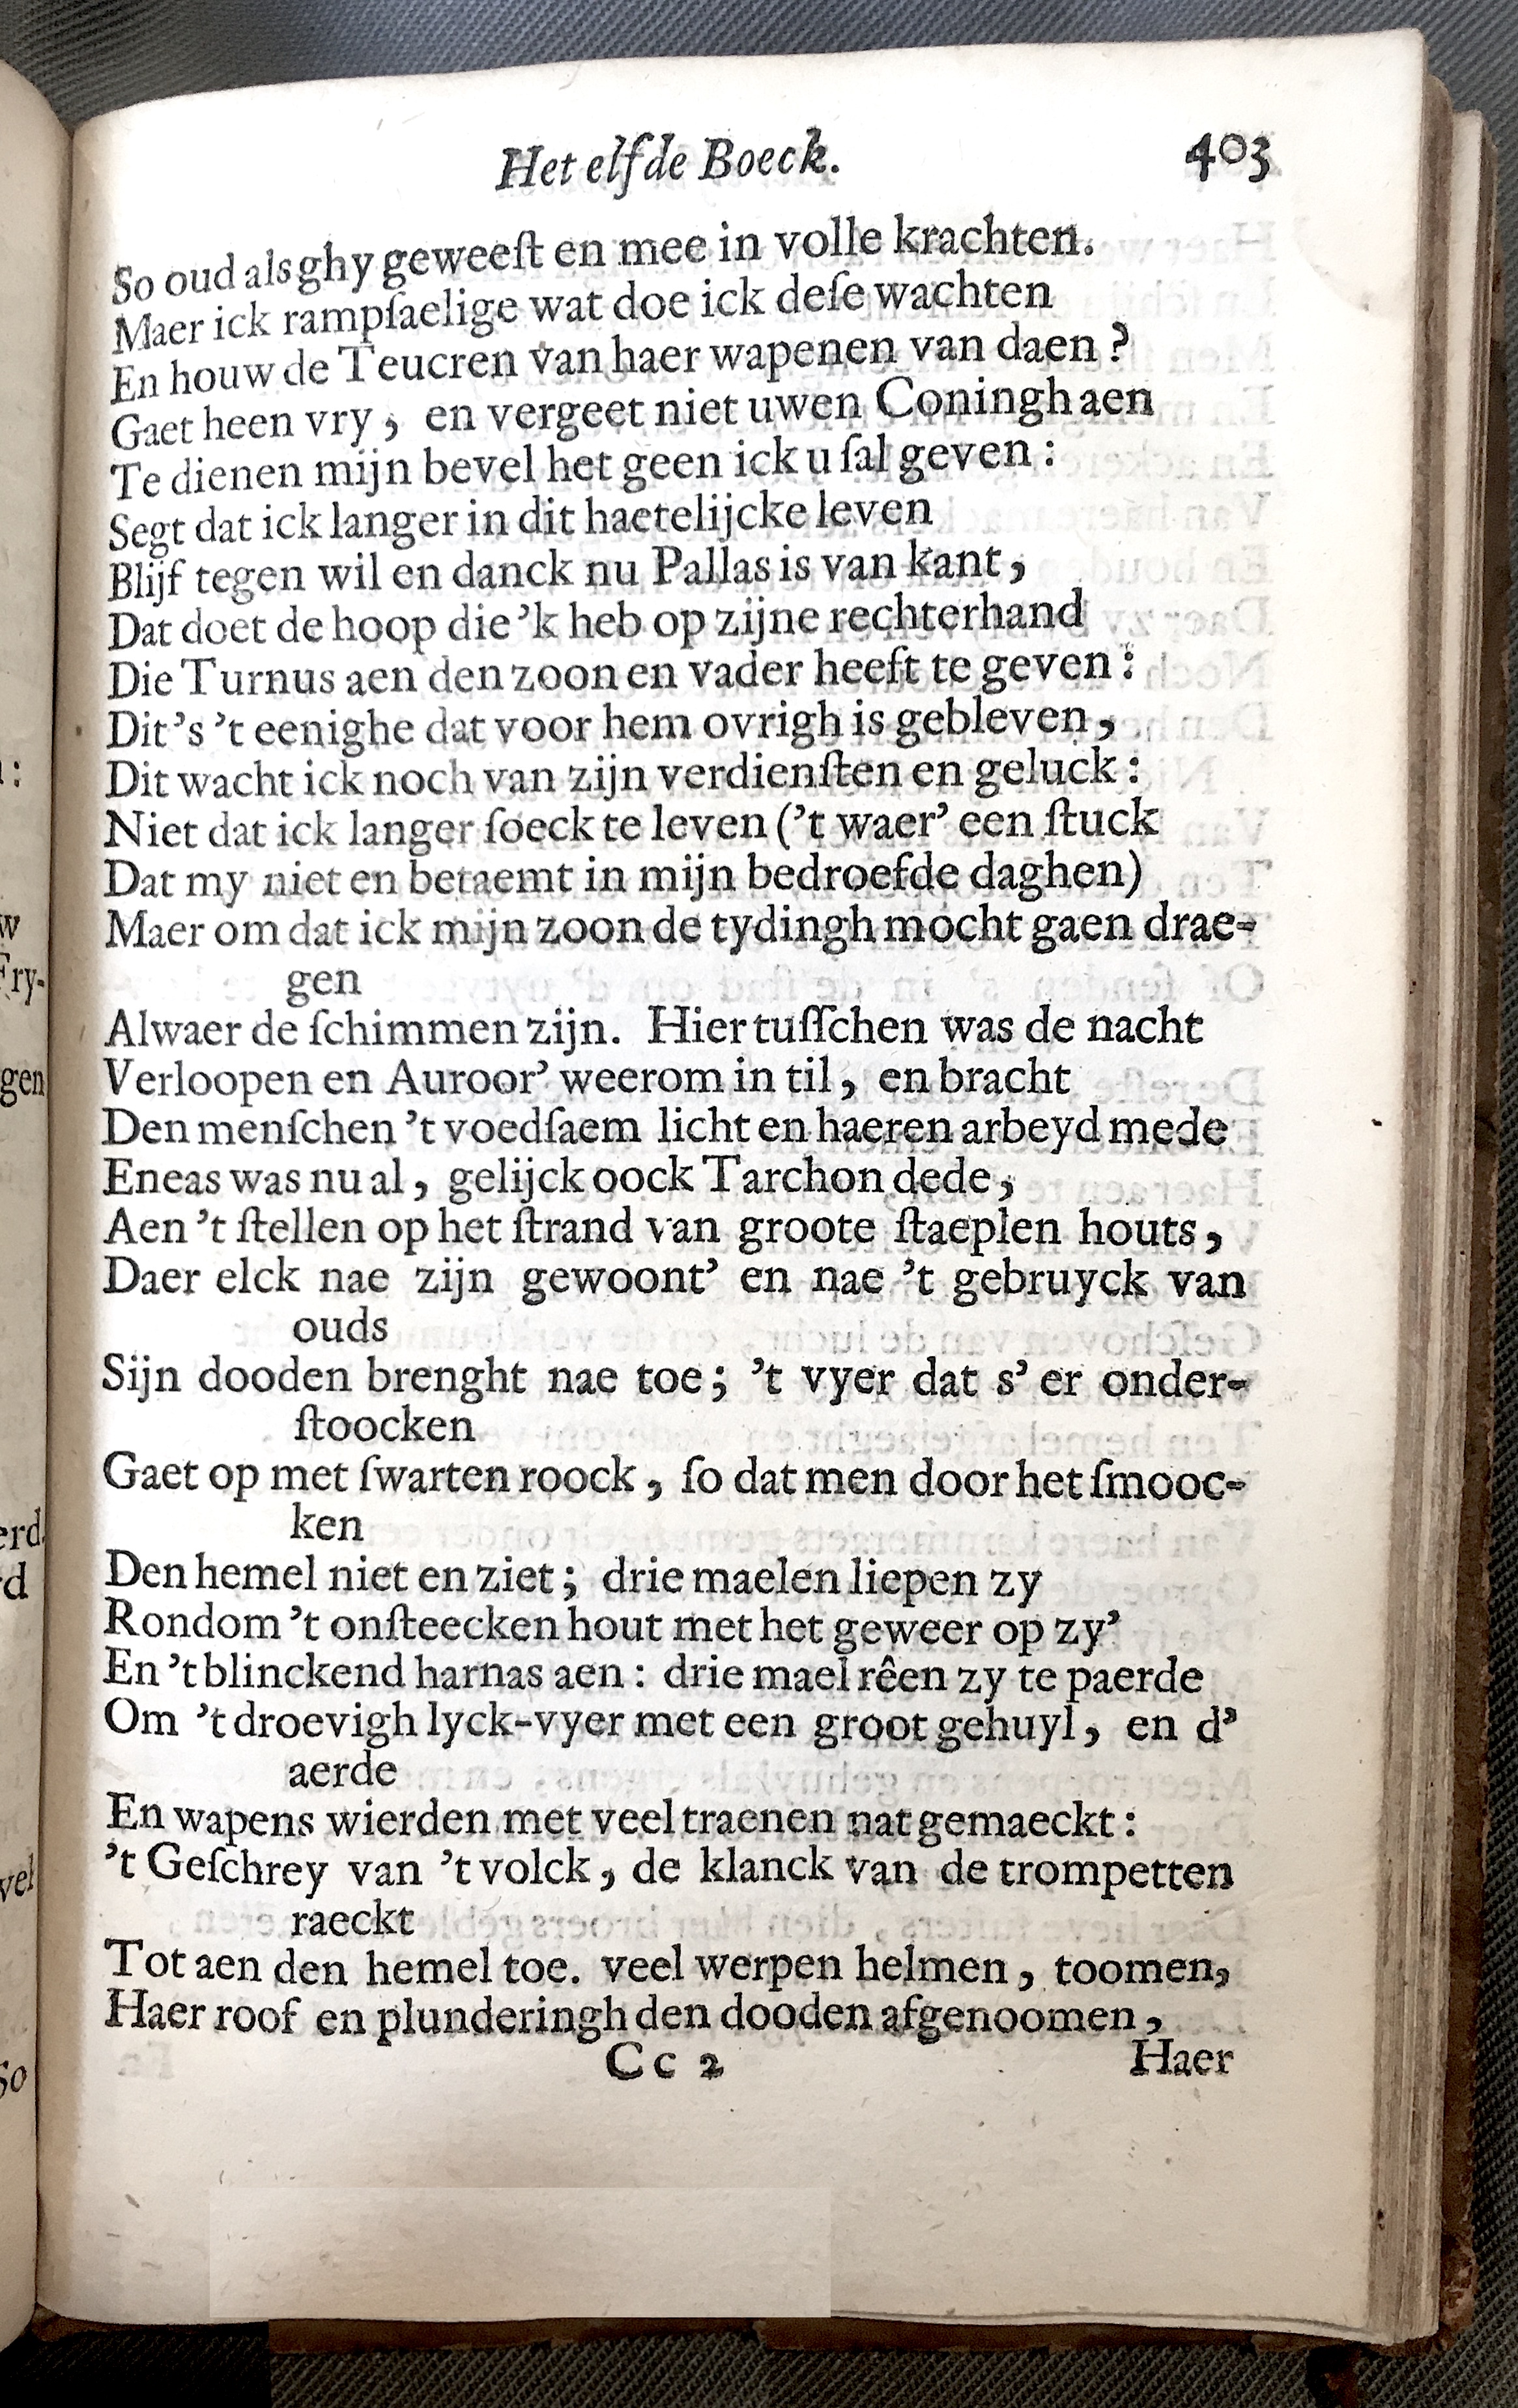 Het elfde Boeck. 403
So oud als ghy geweeſt en mee in volle krachten.
Maer ick rampſaelige wat doe ick deſe wachten
En houw de Teucren van haer wapenen van daen ?
Gaet heen vry , en vergeet niet uwen Coningh aen
Te dienen mijn bevel het geen ick u ſal geven :
Segt dat ick langer in dit haetelijcke leven
Blijf tegen wil en danck nu Pallas is van kant ,
Dat doet de hoop die 'k heb op zijne rechterhand
Die Turnus aen den zoon en vader heeft te geven :
Dit 's 't eenighe dat voor hem ovrigh is gebleven ,
Dit wacht ick noch van zijn verdienſten en geluck :
Niet dat ick langer ſoeck te leven ('t waer' een ſtuck
Dat my niet en betaemt in mijn bedroefde daghen)
Maer om dat ick mijn zoon de tydingh mocht gaen drae-
gen
Alwaer de ſchimmen zijn. Hier tuſſchen was de nacht
Verloopen en Auroor' weerom in til , en bracht
Den menſchen 't voedſaem licht en haeren arbeyd mede
Eneas was nu al , gelijck oock Tarchon dede ,
Aen 't ſtellen op het ſtrand van groote ſtaeplen houts ,
Daer elck nae zijn gewoont' en nae 't gebruyck van
ouds
Sijn dooden brenght nae toe ; 't vyer dat s' er onder-
ſtoocken
Gaet op met ſwarten roock , ſo dat men door het ſmooc-
ken
Den hemel niet en ziet ; drie maelen liepen zy
Rondom 't onſteecken hout met het geweer op zy'
En 't blinckend harnas aen : drie mael rêen zy te paerde
Om 't droevigh lyck-vyer met een groot gehuyl , en d'
aerde
En wapens wierden met veel traenen nat gemaeckt :
't Geſchrey van 't volck , de klanck van de trompetten
raeckt
Tot aen den hemel toe. veel werpen helmen , toomen,
Haer roof en plunderingh den dooden afgenoomen ,
Cc 2 Haer